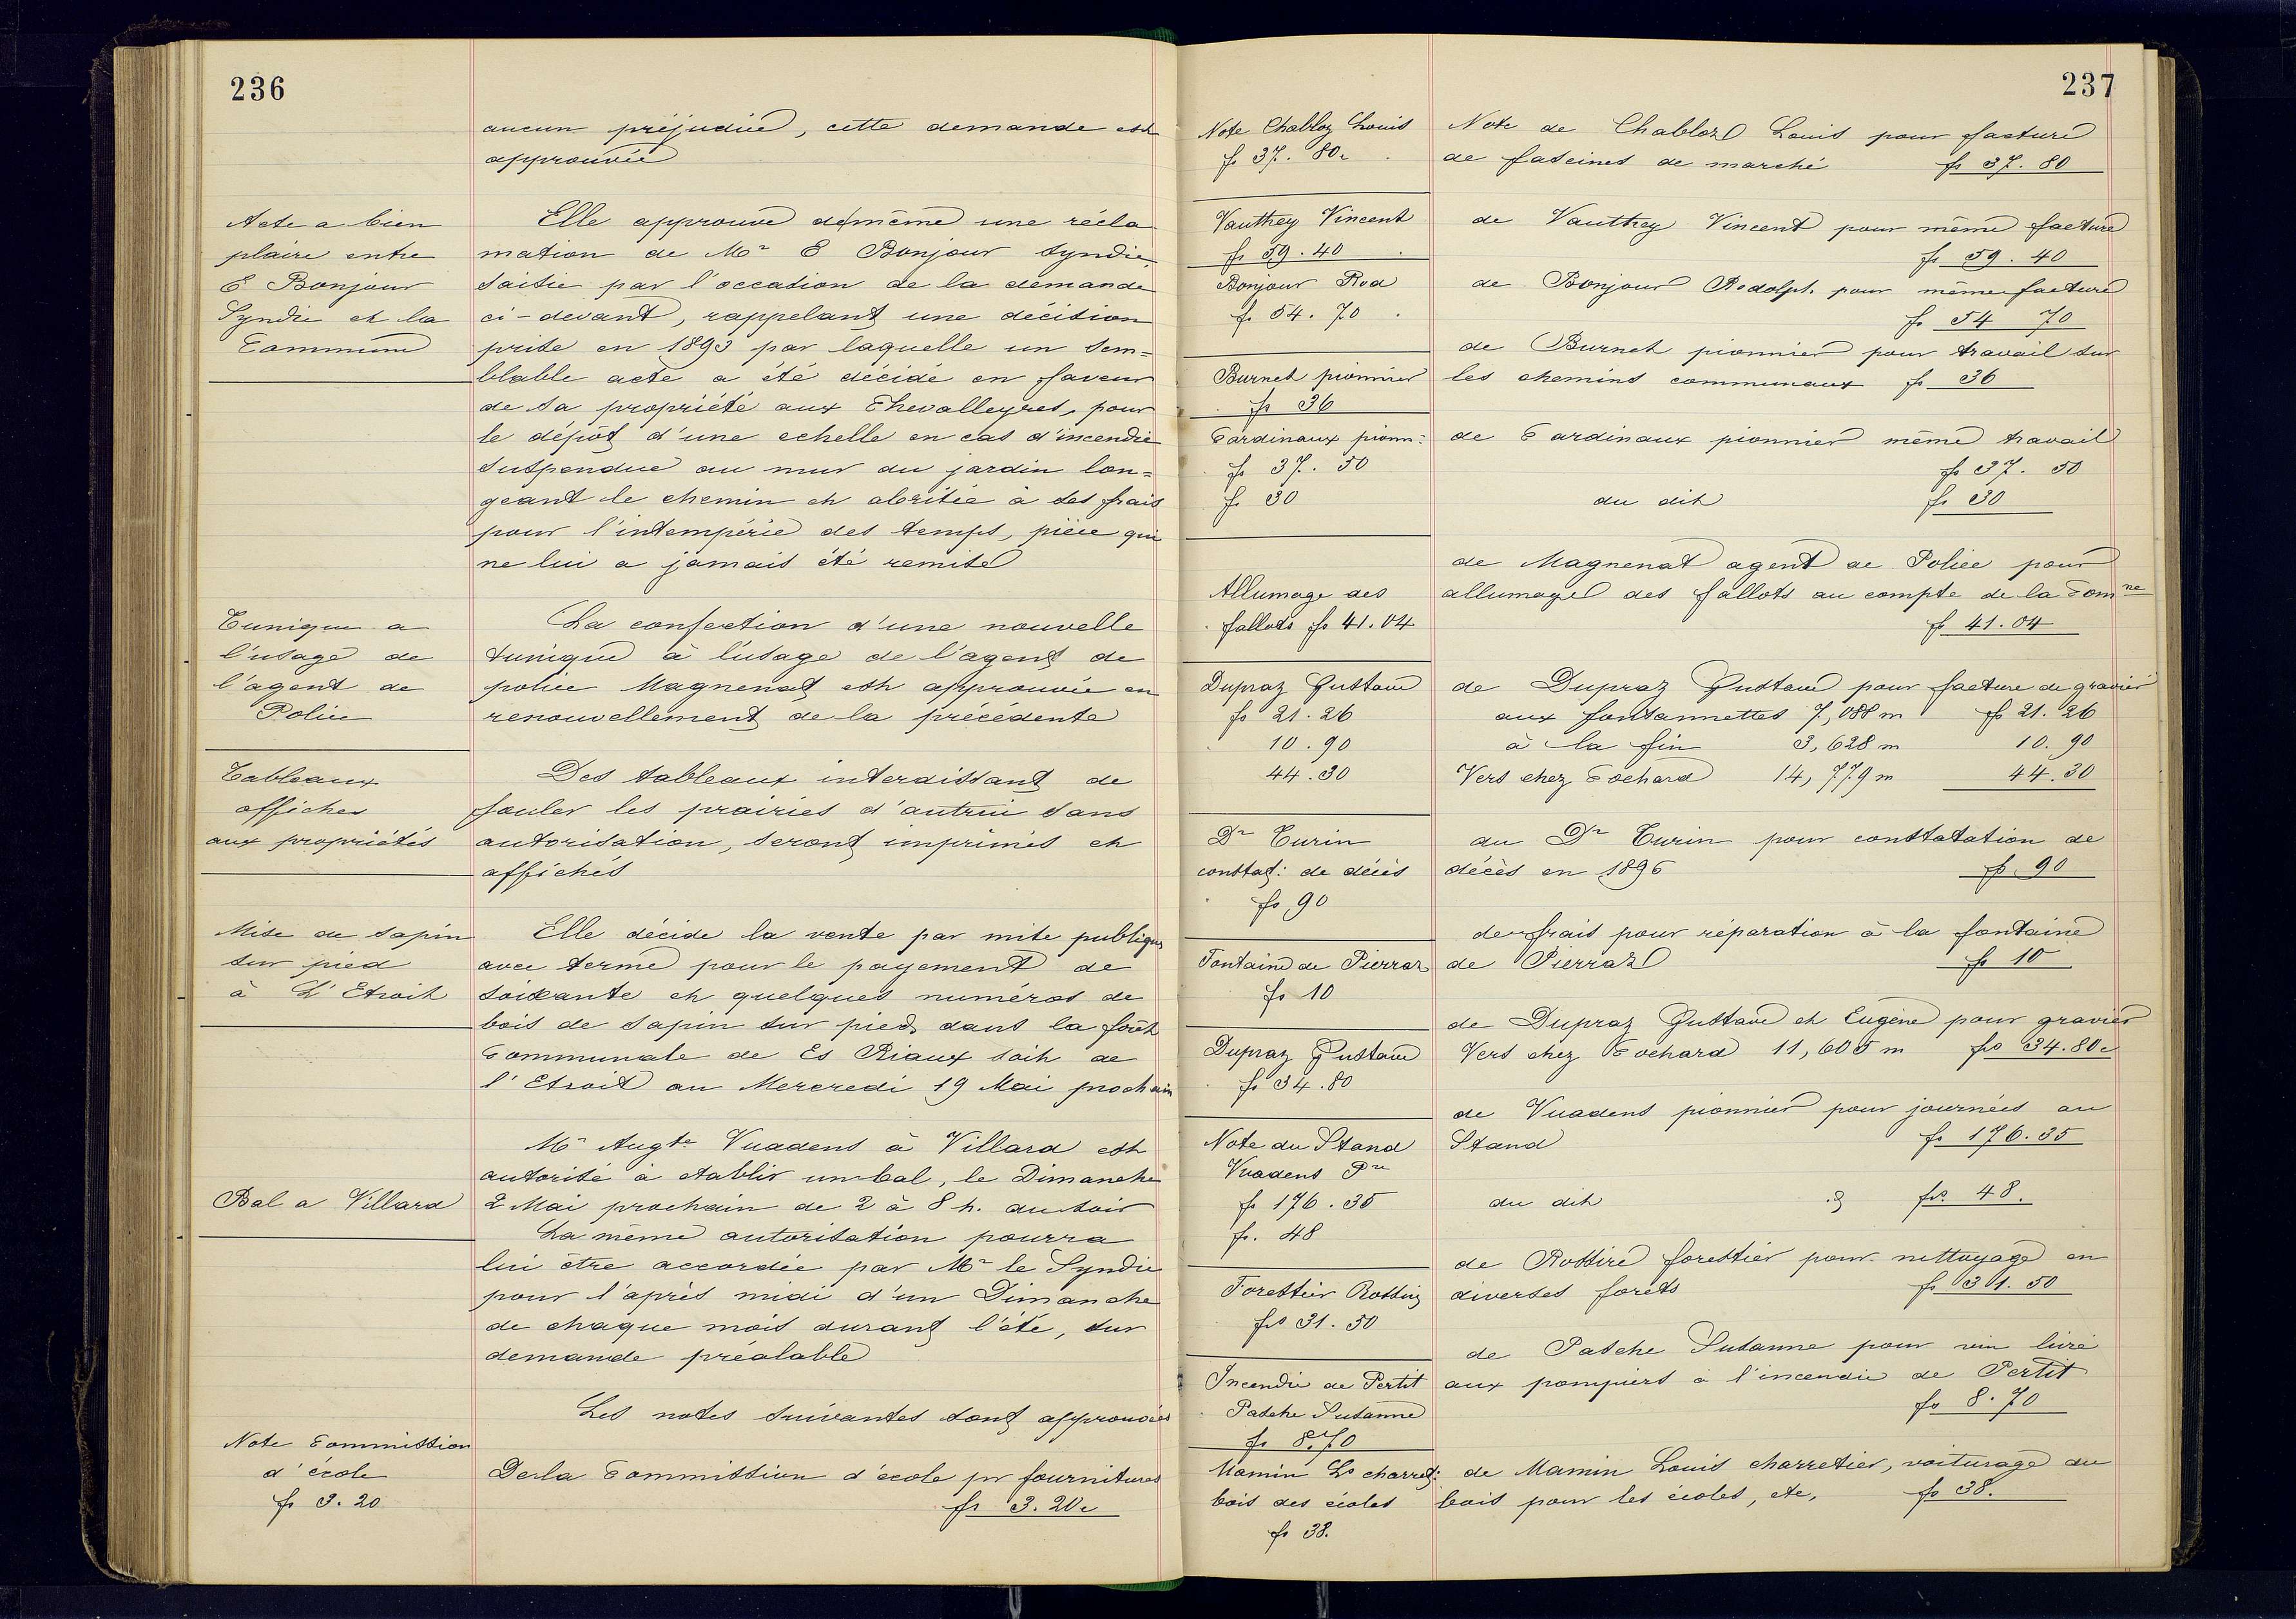 236
aucun préjudice, cette demande est
approuvée
Acte a bien
plaire entre
E Bonjour
Syndic et la
Commune
Elle approuve de même une récla
mation de Mr E Bonjour Syndic,
saisie par l'occasion de la demande
ci-devant, rappelant une décision
prise en 1893 par laquelle un sem=
blable acte a été décidé en faveur
de sa propriété aux Chevalleyres, pour
le dépôt d'une echelle en cas d'incendie
suspendue au mur du jardin lon=
geant le chemin et abritée à ses frais
pour l'intempérie des temps, pièce qui
ne lui a jamais été remise
Tunique a
l'usage de
l'agent de
Police
La confection d'une nouvelle
tunique à l'usage de l'agent de
police Magnenat est approuvée en
renouvellement de la précédente
Tableaux
afficher
aux propriétés
Des tableaux interdissant de
fouler les prairies d'autrui sans
autorisation, seront imprimés et
affichés
Mise de sapin
sur pied
à L'Etroit
Elle décide la vente par mise publique
avec terme pour le payement de
soixante et quelques numéros de
bois de sapin sur pied, dans la forêt
Communale de Es Riaux soit de
l'Etroit au Mercredi 19 Mai prochain
Bal a Villard
Mr Augte Vuadens à Villard est
autorisé à etablir un bal, le Dimanche
2 Mai prochain de 2 à 8 h. du soir
La même autorisation pourra
lui être accordée par Mr le Syndic
pour l'après midi d'un Dimanche
de chaque mois durant l'été, sur
demande préalable
Les notes suivantes sont approuvées
Note Commission
d'école
fr 3.20
De la Commission d'école pr fournitures
fr 3.20c
237
Note Chabloz Louis
fr 37.80c
Note de Chabloz Louis pour facture
de fascines de marché fr 37.80
Vauthey Vincent
fr 59.40
de Vauthey Vincent pour même facture
fr 59.40
Bonjour Rod
fr 54.70
de Bonjour Rodolph. pour même facture
fr 54 70
Burnet pionnier
fr 36
de Burnet pionnier pour travail sur
les chemins communaux fr 36
Cardinaux pionn:
fr 37.50
fr 30
de Cardinaux pionnier même travail
fr 37.50
du dit fr 30
Allumage des
fallots fr 41.04
de Magnenat agent de Police pour
allumage des fallots au compte de la Comne
fr 41.04
Dupraz Gustave
fr 21.26
10.90
44.30
de Dupraz Gustave pour facture de gravier
aux fontannettes 7,088 m fr 21.26
à la fin 3,628 m 10.90
Vers chez Cochard 14,779 m 44.30
Dr Turin
constat: de décès
fr 90
du Dr Turin pour constatation de
décès en 1896 fr 90
Fontaine de Pierraz
fr 10
de frais pour réparation à la fontaine
de Pierraz fr 10
Dupraz Gustave
fr 34.80
de Dupraz Gustave et Eugène pour gravier
Vers chez Cochard 11,605 m frs 34.80c
Note du Stand
Vuadens Pre
fr 176.35
fr. 48
de Vuadens pionnier pour journées au
Stand fr 176.35
du dit frs 48.
Forestier Rossire
frs 31.50
de Rossire forestier pour nettoyage en
diverses forets fr 31.50
Incendie de Pertit
Pasche Susanne
fr 8.70
de Pasche Susanne pour vin livré
aux pompiers à l'incendie de Pertit
fr 8.70
Mamin Ls charret:
bois des écoles
fr 38.
de Mamin Louis charretier, voiturage du
bois pour les écoles, etc, fr 38.